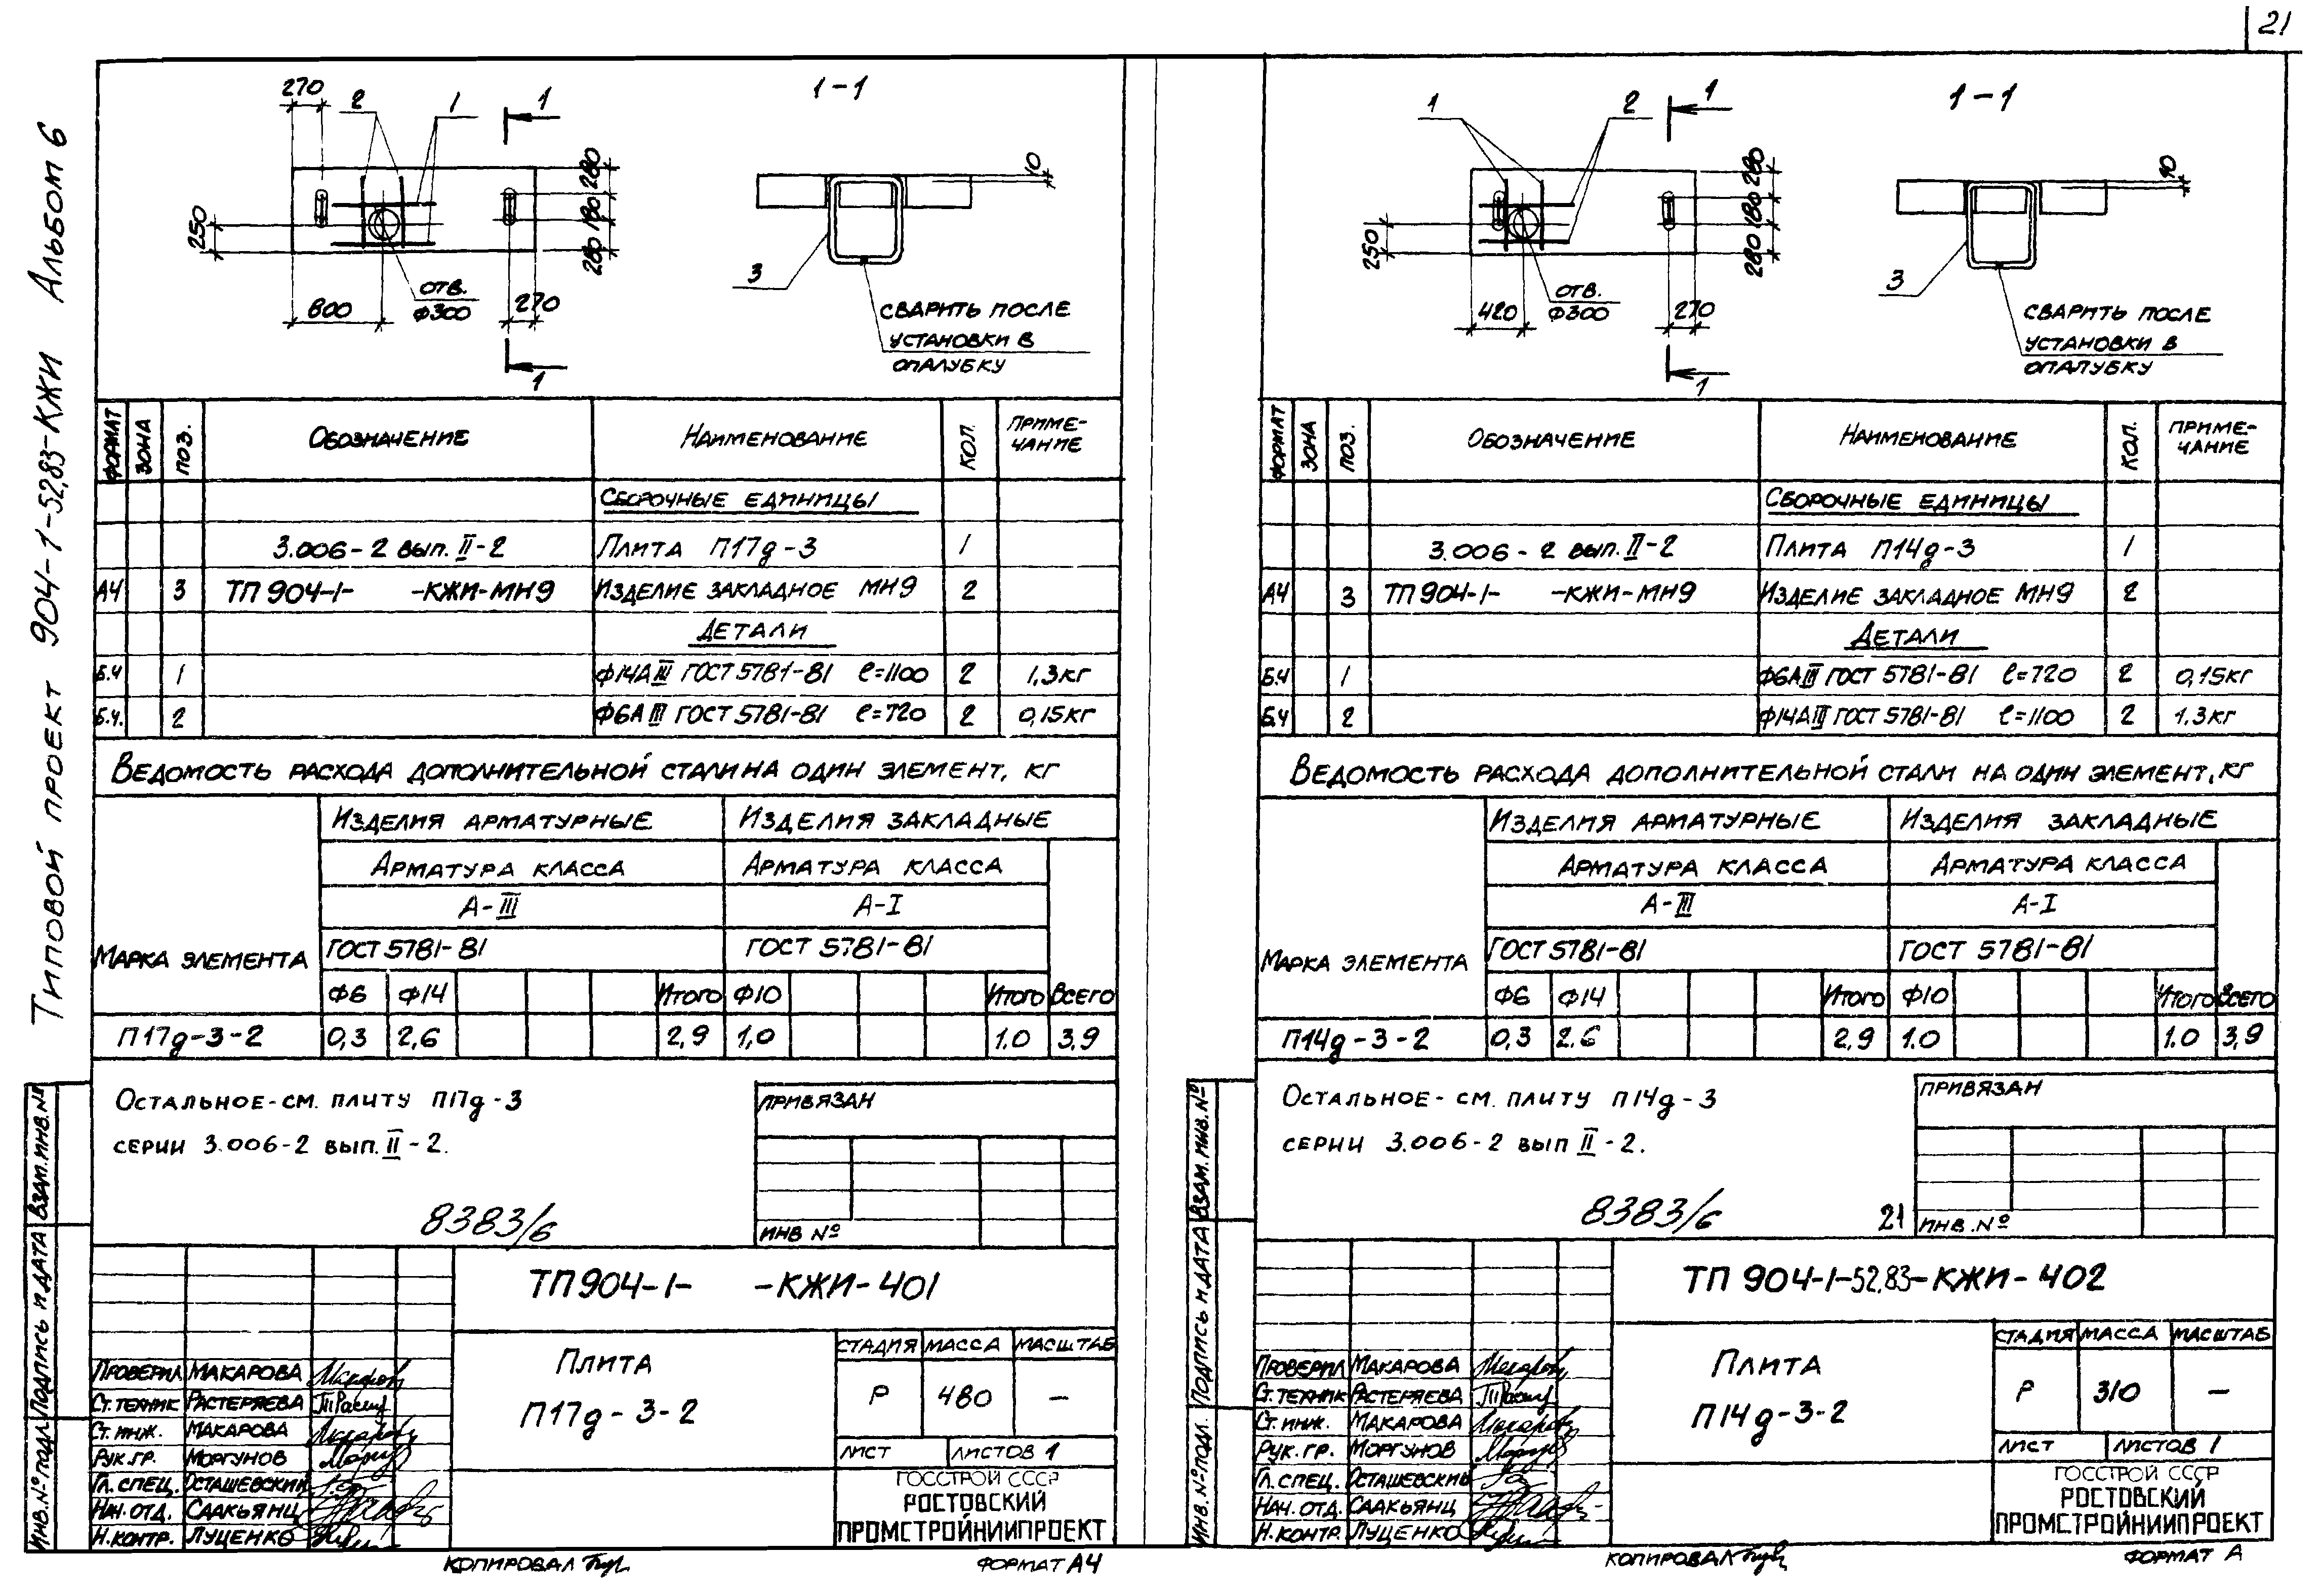 21
Типовой проект 904-1-52.83-КЖИ Альбом 6
270
2
1
1
1-1
280
180
280
250
800
отв.
Ф300
270
1
10
3
Сварить после
установки в
опалубку
Формат
Зона
Поз.
Обозначение
Наименование
Кол.
Приме-
чание
Сборочные единицы
3.006-2 вып. II-2 Плита П17д-3 1
А4 3 ТП 904-1- -КЖИ-МН9 Изделие закладное МН9 2
Детали
Б.Ч 1 Ф14АIII ГОСТ 5781-81 ℓ=1100 2 1,3кг
Б.Ч. 2 Ф6АIII ГОСТ 5781-81 ℓ=720 2 0,15кг
Ведомость расхода дополнительной стали на один элемент, кг
Марка элемента
Изделия арматурные Изделия закладные
Арматура класса Арматура класса
А-III А-I
ГОСТ 5781-81 ГОСТ 5781-81
Ф6 Ф14 Итого Ф10 Итого Всего
П17д-3-2 0,3 2,6 2,9 1,0 1.0 3,9
Остальное-см. плиту П17д-3
серии 3.006-2 вып. II-2.
Привязан
8383/6
Инв №
Инв.№ подл. Подпись и дата Взам.инв.№
ТП 904-1- -КЖИ-401
Плита
П17д-3-2
Стадия Масса Масштаб
Р 480 —
Лист Листов 1
Госстрой СССР
РОСТОВСКИЙ
ПРОМСТРОЙНИИПРОЕКТ
Проверил Макарова
Ст.техник Растеряева
Ст.инж. Макарова
Рук.гр. Моргунов
Гл.спец. Осташевский
Нач.отд. Саакьянц
Н.контр. Луценко
Копировал
Формат А4
1
2
1
1-1
280
180
280
250
420
отв.
Ф300
270
1
10
3
Сварить после
установки в
опалубку
Формат
Зона
Поз.
Обозначение
Наименование
Кол.
Приме-
чание
Сборочные единицы
3.006-2 вып. II-2 Плита П14д-3 1
А4 3 ТП 904-1- -КЖИ-МН9 Изделие закладное МН9 2
Детали
Б.Ч 1 Ф6АIII ГОСТ 5781-81 ℓ=720 2 0,15кг
Б.Ч 2 Ф14АIII ГОСТ 5781-81 ℓ=1100 2 1.3кг
Ведомость расхода дополнительной стали на один элемент, кг
Марка элемента
Изделия арматурные Изделия закладные
Арматура класса Арматура класса
А-III А-I
ГОСТ 5781-81 ГОСТ 5781-81
Ф6 Ф14 Итого Ф10 Итого Всего
П14д-3-2 0,3 2.6 2,9 1.0 1.0 3,9
Остальное-см. плиту П14д-3
серии 3.006-2 вып II-2.
Привязан
8383/6
21
Инв.№
Инв.№ подл. Подпись и дата Взам.инв.№
ТП 904-1-52.83-КЖИ-402
Плита
П14д-3-2
Стадия Масса Масштаб
Р 310 —
Лист Листов 1
Госстрой СССР
РОСТОВСКИЙ
ПРОМСТРОЙНИИПРОЕКТ
Проверил Макарова
Ст.техник Растеряева
Ст.инж. Макарова
Рук.гр. Моргунов
Гл.спец. Осташевский
Нач.отд. Саакьянц
Н.контр. Луценко
Копировал
Формат А